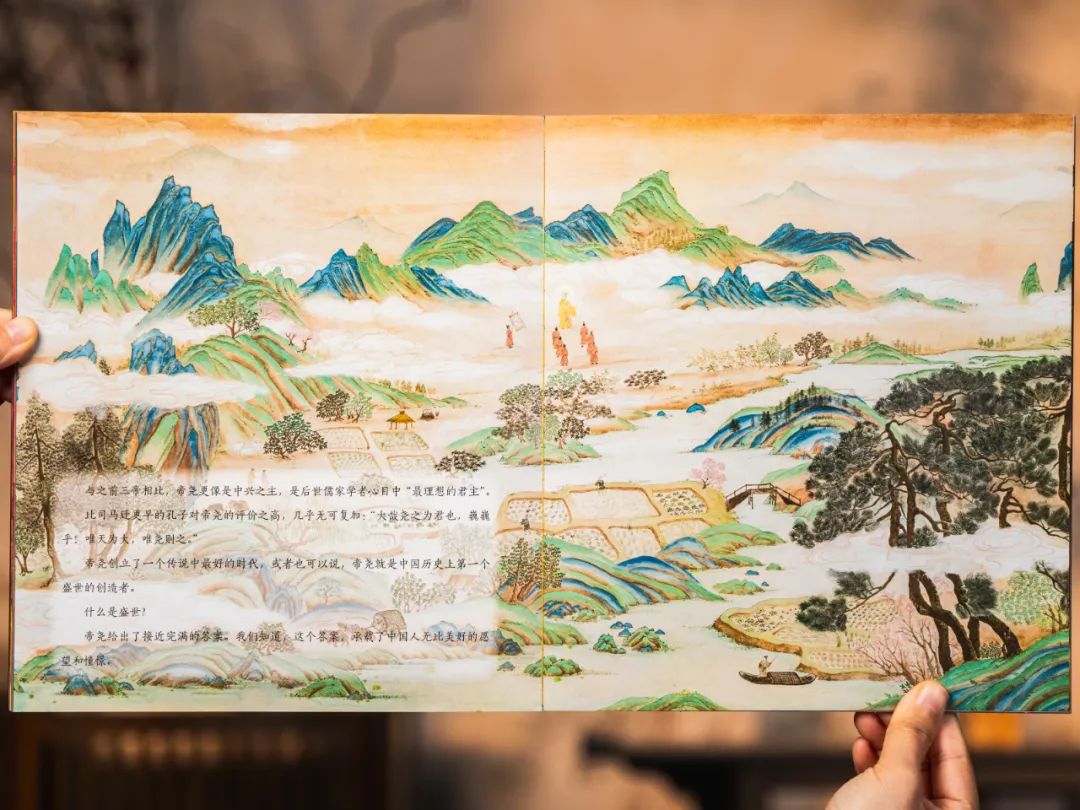 与之前三帝相比，帝尧更像是中兴之主，是后世儒家学者心目中“最理想的君主”。
比司马迁更早的孔子对帝尧的评价之高，几乎无可复加：“大哉尧之为君也，巍巍
乎！唯天为大，唯尧则之。”
帝尧创立了一个传说中最好的时代，或者也可以说，帝尧就是中国历史上第一个
盛世的创造者。
什么是盛世？
帝尧给出了接近完满的答案。我们知道，这个答案，承载了中国人无比美好的愿
望和憧憬。